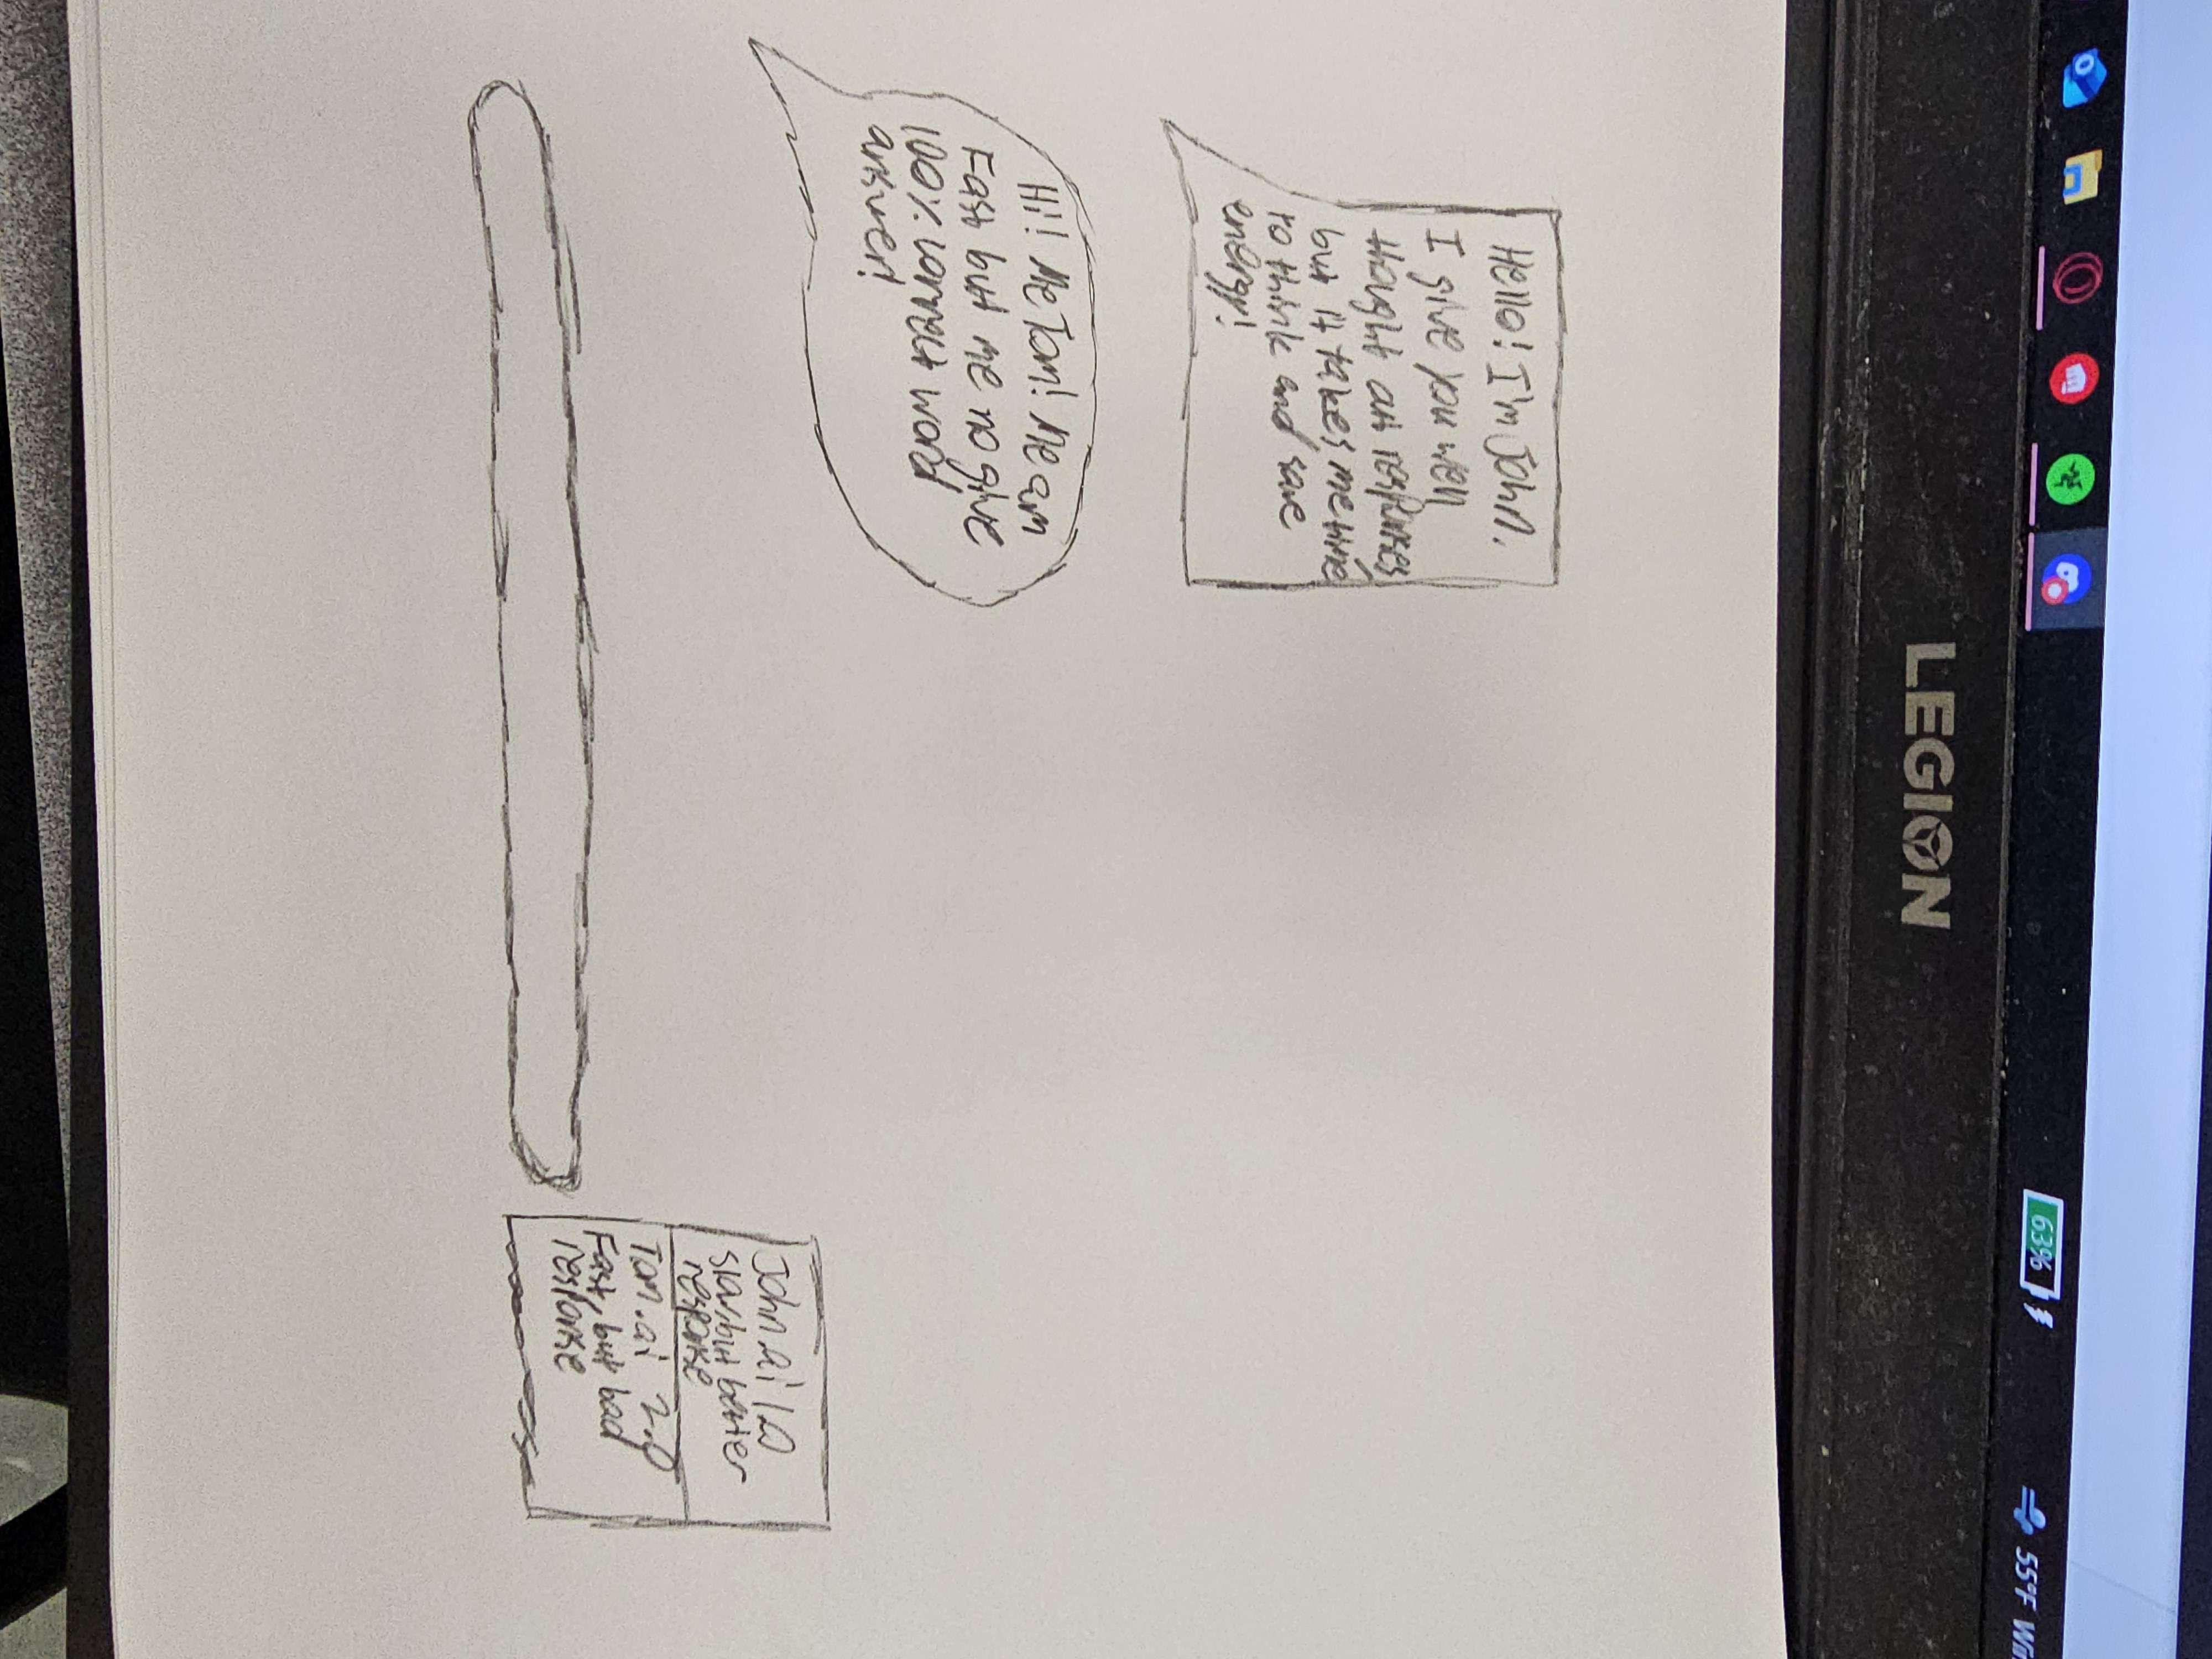 63%
55°F
LEGION
Hello! I'm John.
I give you well
thought out responses
but it takes me time
to think and save
energy!
Hi! Me Tom! Me am
Fast but me no give
100% correct word
answer!
John.ai 1.0
Slow, but better
response
Tom.ai 2.0
Fast, but bad
response